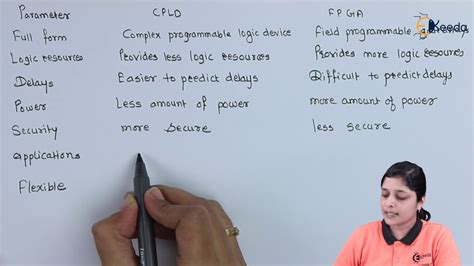 Parameter CPLD FPGA
Full form Complex programmable logic device Field programmable
Ekeeda
Logic resources Provides less logic resources Provides more logic resources
Delays Easier to predict delays Difficult to predict delays
Power Less amount of power more amount of power
Security more secure less secure
applications
Flexible